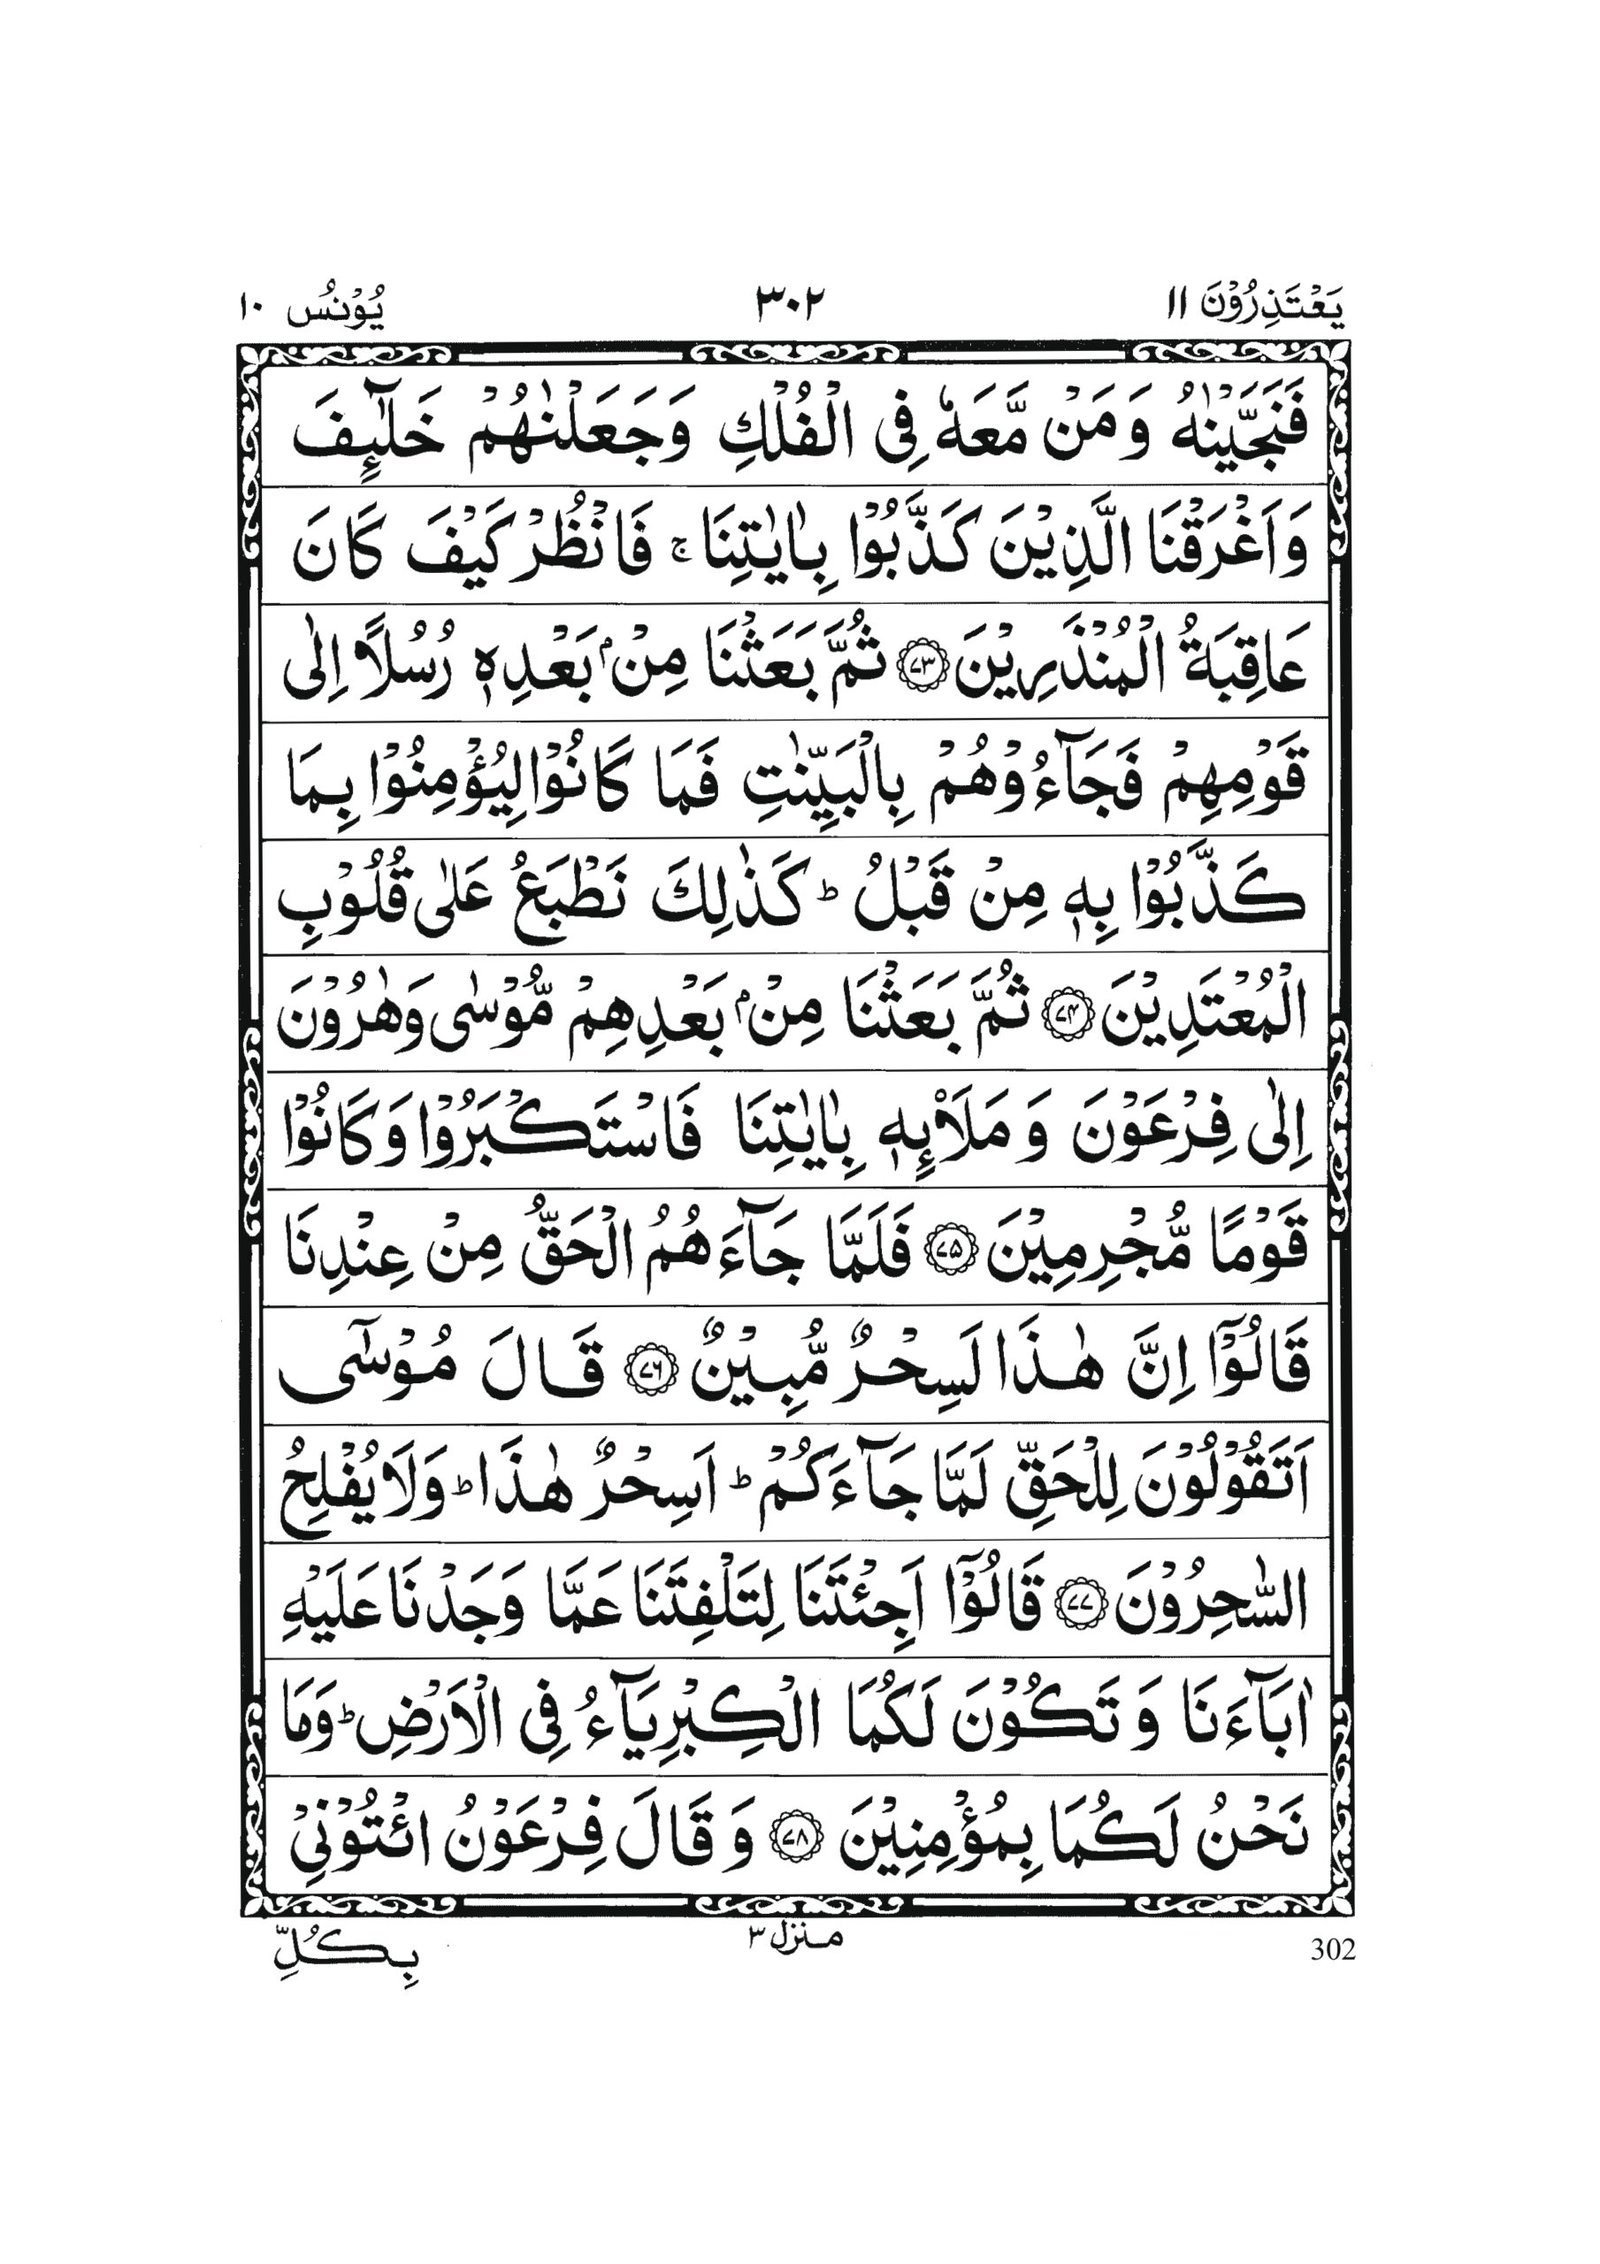 يَعْتَذِرُوْنَ ١١ ٣٠٢ يُوْنُسُ ١٠
فَنَجَّيْنٰهُ وَمَنْ مَّعَهٗ فِى الْفُلْكِ وَجَعَلْنٰهُمْ خَلٰٓئِفَ
وَاَغْرَقْنَا الَّذِيْنَ كَذَّبُوْا بِاٰيٰتِنَا ۚ فَانْظُرْ كَيْفَ كَانَ
عَاقِبَةُ الْمُنْذَرِيْنَ ۝٧٣ ثُمَّ بَعَثْنَا مِنْۢ بَعْدِهٖ رُسُلًا اِلٰى
قَوْمِهِمْ فَجَآءُوْهُمْ بِالْبَيِّنٰتِ فَمَا كَانُوْا لِيُؤْمِنُوْا بِمَا
كَذَّبُوْا بِهٖ مِنْ قَبْلُ ؕ كَذٰلِكَ نَطْبَعُ عَلٰى قُلُوْبِ
الْمُعْتَدِيْنَ ۝٧٤ ثُمَّ بَعَثْنَا مِنْۢ بَعْدِهِمْ مُّوْسٰى وَهٰرُوْنَ
اِلٰى فِرْعَوْنَ وَمَلَا۟ئِهٖ بِاٰيٰتِنَا فَاسْتَكْبَرُوْا وَكَانُوْا
قَوْمًا مُّجْرِمِيْنَ ۝٧٥ فَلَمَّا جَآءَهُمُ الْحَقُّ مِنْ عِنْدِنَا
قَالُوْۤا اِنَّ هٰذَا لَسِحْرٌ مُّبِيْنٌ ۝٧٦ قَالَ مُوْسٰٓى
اَتَقُوْلُوْنَ لِلْحَقِّ لَمَّا جَآءَكُمْ ؕ اَسِحْرٌ هٰذَا ؕ وَلَا يُفْلِحُ
السّٰحِرُوْنَ ۝٧٧ قَالُوْۤا اَجِئْتَنَا لِتَلْفِتَنَا عَمَّا وَجَدْنَا عَلَيْهِ
اٰبَآءَنَا وَتَكُوْنَ لَكُمَا الْكِبْرِيَآءُ فِى الْاَرْضِ ؕ وَمَا
نَحْنُ لَكُمَا بِمُؤْمِنِيْنَ ۝٧٨ وَقَالَ فِرْعَوْنُ ائْتُوْنِيْ
302 منزل ٣ بِكُلِّ